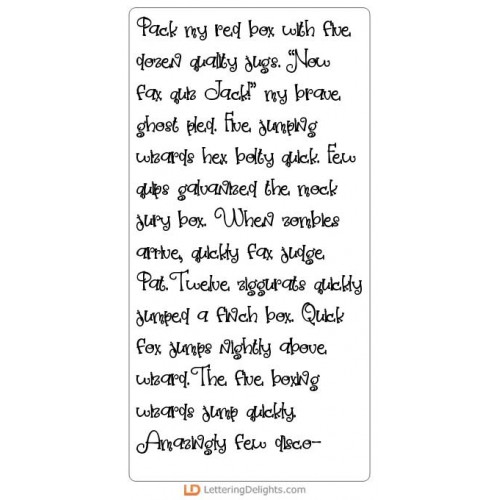 Pack my red box with five
dozen quality jugs. "Now
fax quiz Jack!" my brave
ghost pled. Five jumping
wizards hex bolty quick. Few
quips galvanized the mock
jury box. When zombies
arrive, quickly fax judge
Pat. Twelve ziggurats quickly
jumped a finch box. Quick
fox jumps nightly above
wizard. The five boxing
wizards jump quickly.
Amazingly few disco-
LD LetteringDelights.com